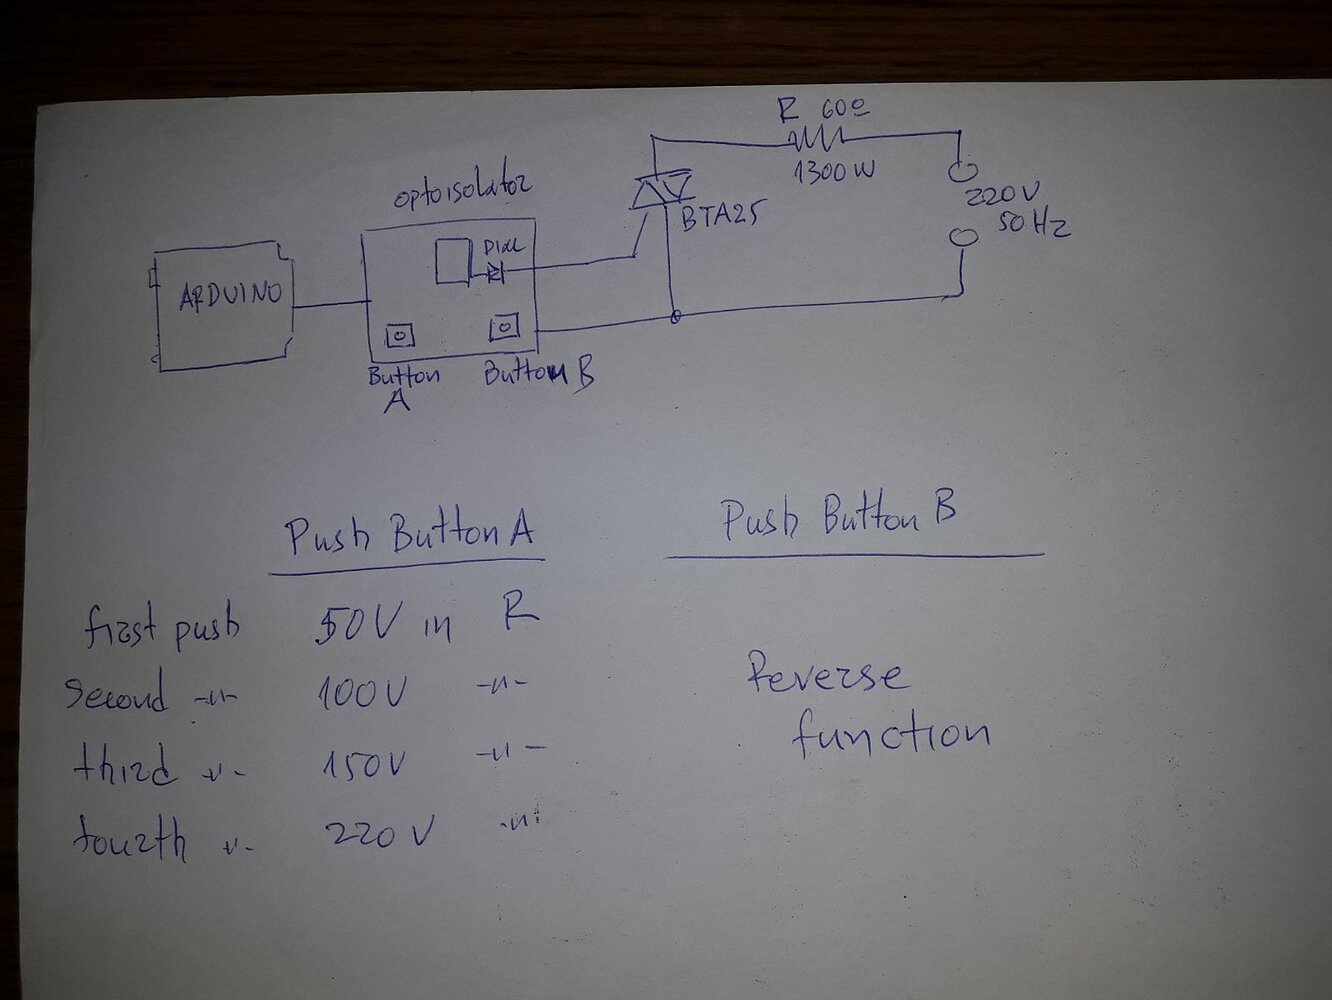 R 60Ω
1300W
optoisolator
220V
50Hz
BTA25
ARDUINO
Button
A
Button B
Push Button A
Push Button B
first push 50V in R
Second -"- 100V -"-
third "- 150V -"-
fourth "- 220V -"-
Reverse
function